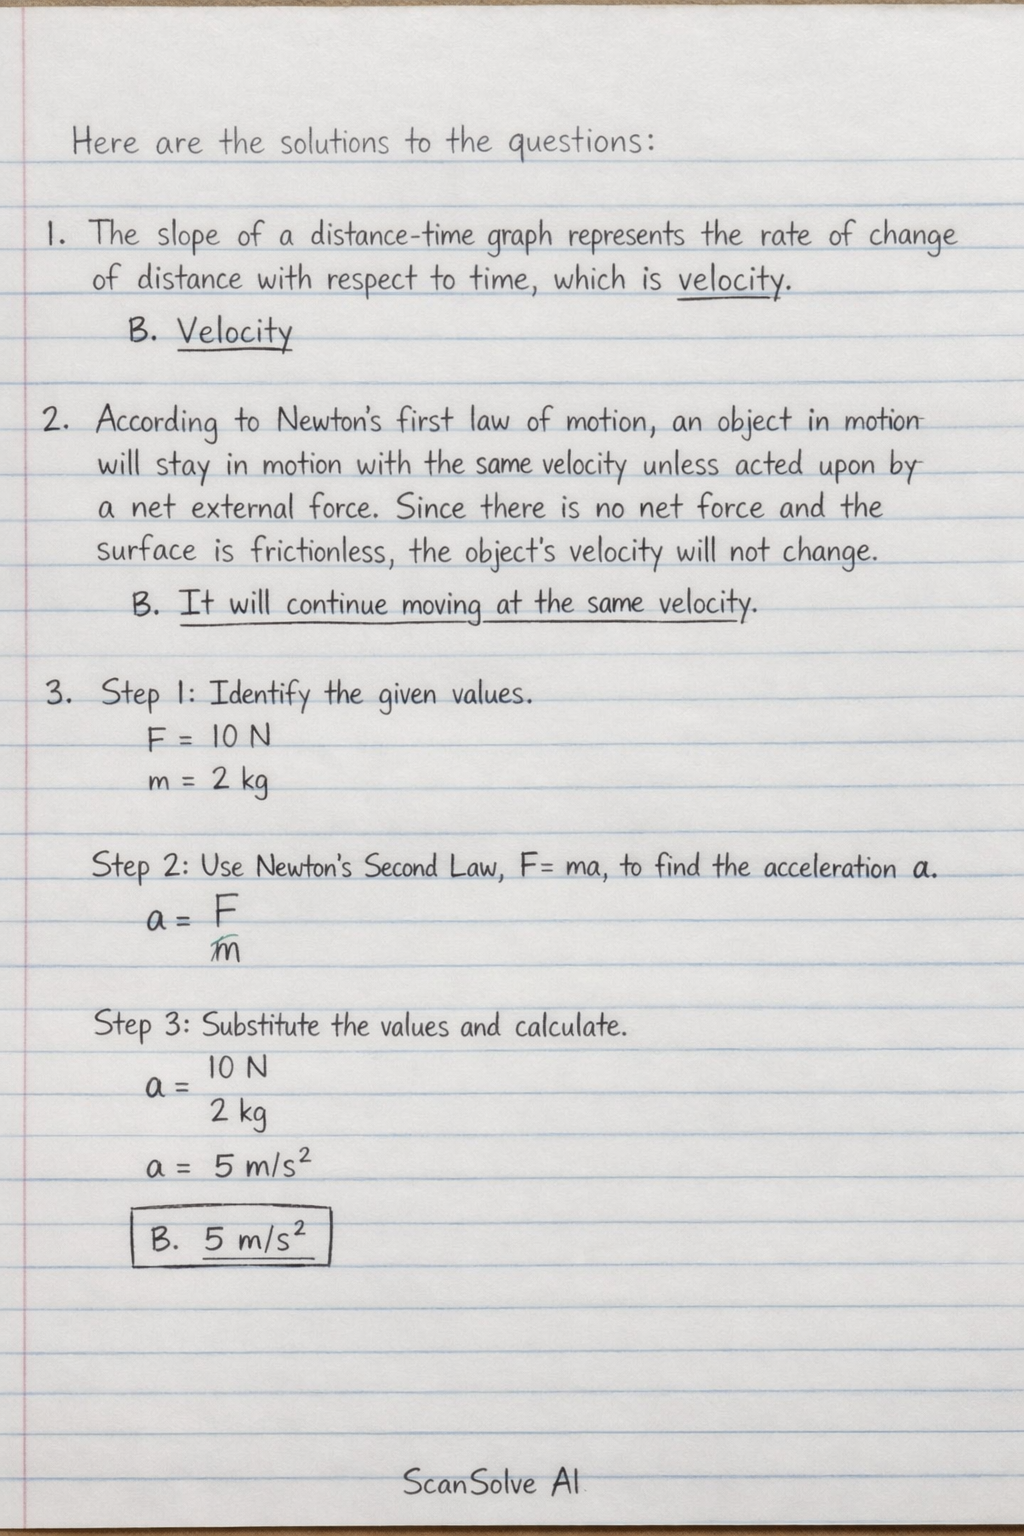 Here are the solutions to the questions:
1. The slope of a distance-time graph represents the rate of change
of distance with respect to time, which is velocity.
B. Velocity
2. According to Newton's first law of motion, an object in motion
will stay in motion with the same velocity unless acted upon by
a net external force. Since there is no net force and the
surface is frictionless, the object's velocity will not change.
B. It will continue moving at the same velocity.
3. Step 1: Identify the given values.
F = 10 N
m = 2 kg
Step 2: Use Newton's Second Law, F= ma, to find the acceleration a.
a = F
m
Step 3: Substitute the values and calculate.
a = 10 N
2 kg
a = 5 m/s²
B. 5 m/s²
ScanSolve AI